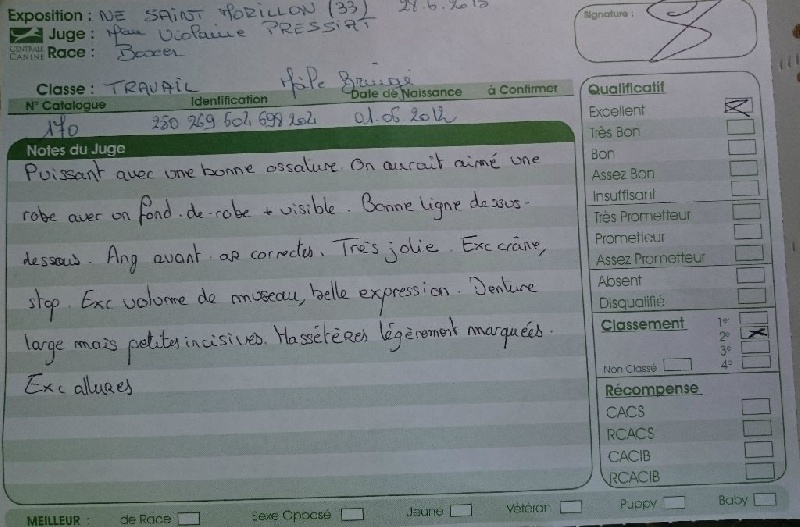 Exposition : NE SAINT MORILLON (33) 28.6.2015
Signature :
CENTRALE CANINE
Juge : Violaine PRESSIAT
Race : Boxer
Classe : TRAVAIL Mâle Bringé
N° Catalogue Identification Date de Naissance à Confirmer
170 250 269 602 01.06 2012
Notes du Juge
Puissant avec une bonne ossature. On aurait aimé une
robe avec un fond-de-robe + visible. Bonne ligne dessus-
dessous. Ang avant. ar correctes. Très jolie. Exc crâne,
stop. Exc volume de museau, belle expression. Denture
large mais petites incisives. Massétères légèrement marquées.
Exc allures
Qualificatif
Excellent
Très Bon
Bon
Assez Bon
Insuffisant
Très Prometteur
Prometteur
Assez Prometteur
Absent
Disqualifié
Classement 1°
2°
3°
Non Classé 4°
Récompense
CACS
RCACS
CACIB
RCACIB
MEILLEUR : de Race Sexe Opposé Jeune Vétéran Puppy Baby